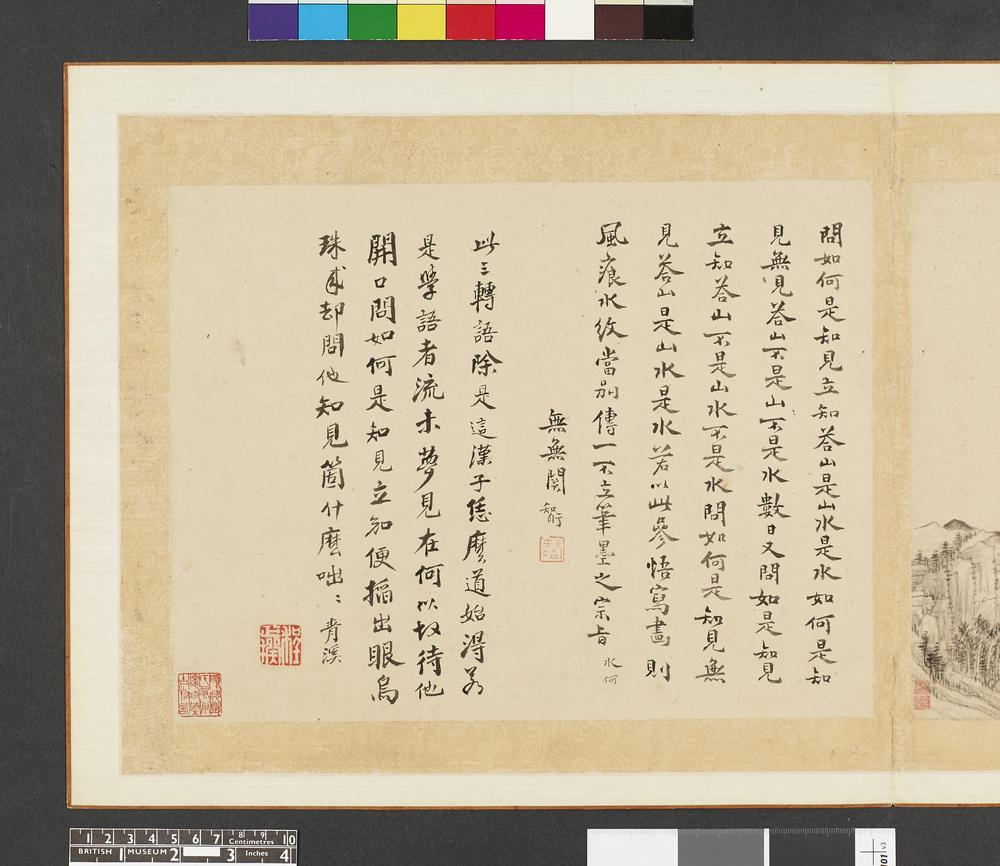 問如何是知見立知荅山是山水是水如何是知
見無見荅山不是山不是水數日又問如是知見
立知荅山不是山水不是水問如何是知見無
見荅山是山水是水若以此參悟寫畫則
風痕水紋當別傳一不立筆墨之宗旨 水何
無無関 知衍
此三轉語除是這漢子恁麼道始得若
是學語者流未夢見在何以故待他
開口問如何是知見立知便搯出眼烏
珠來却問他知見箇什麼咄〻 青溪
1 2 3 4 5 6 7 8 9 10
Centimetres
BRITISH MUSEUM
1 2 3 4
Inches